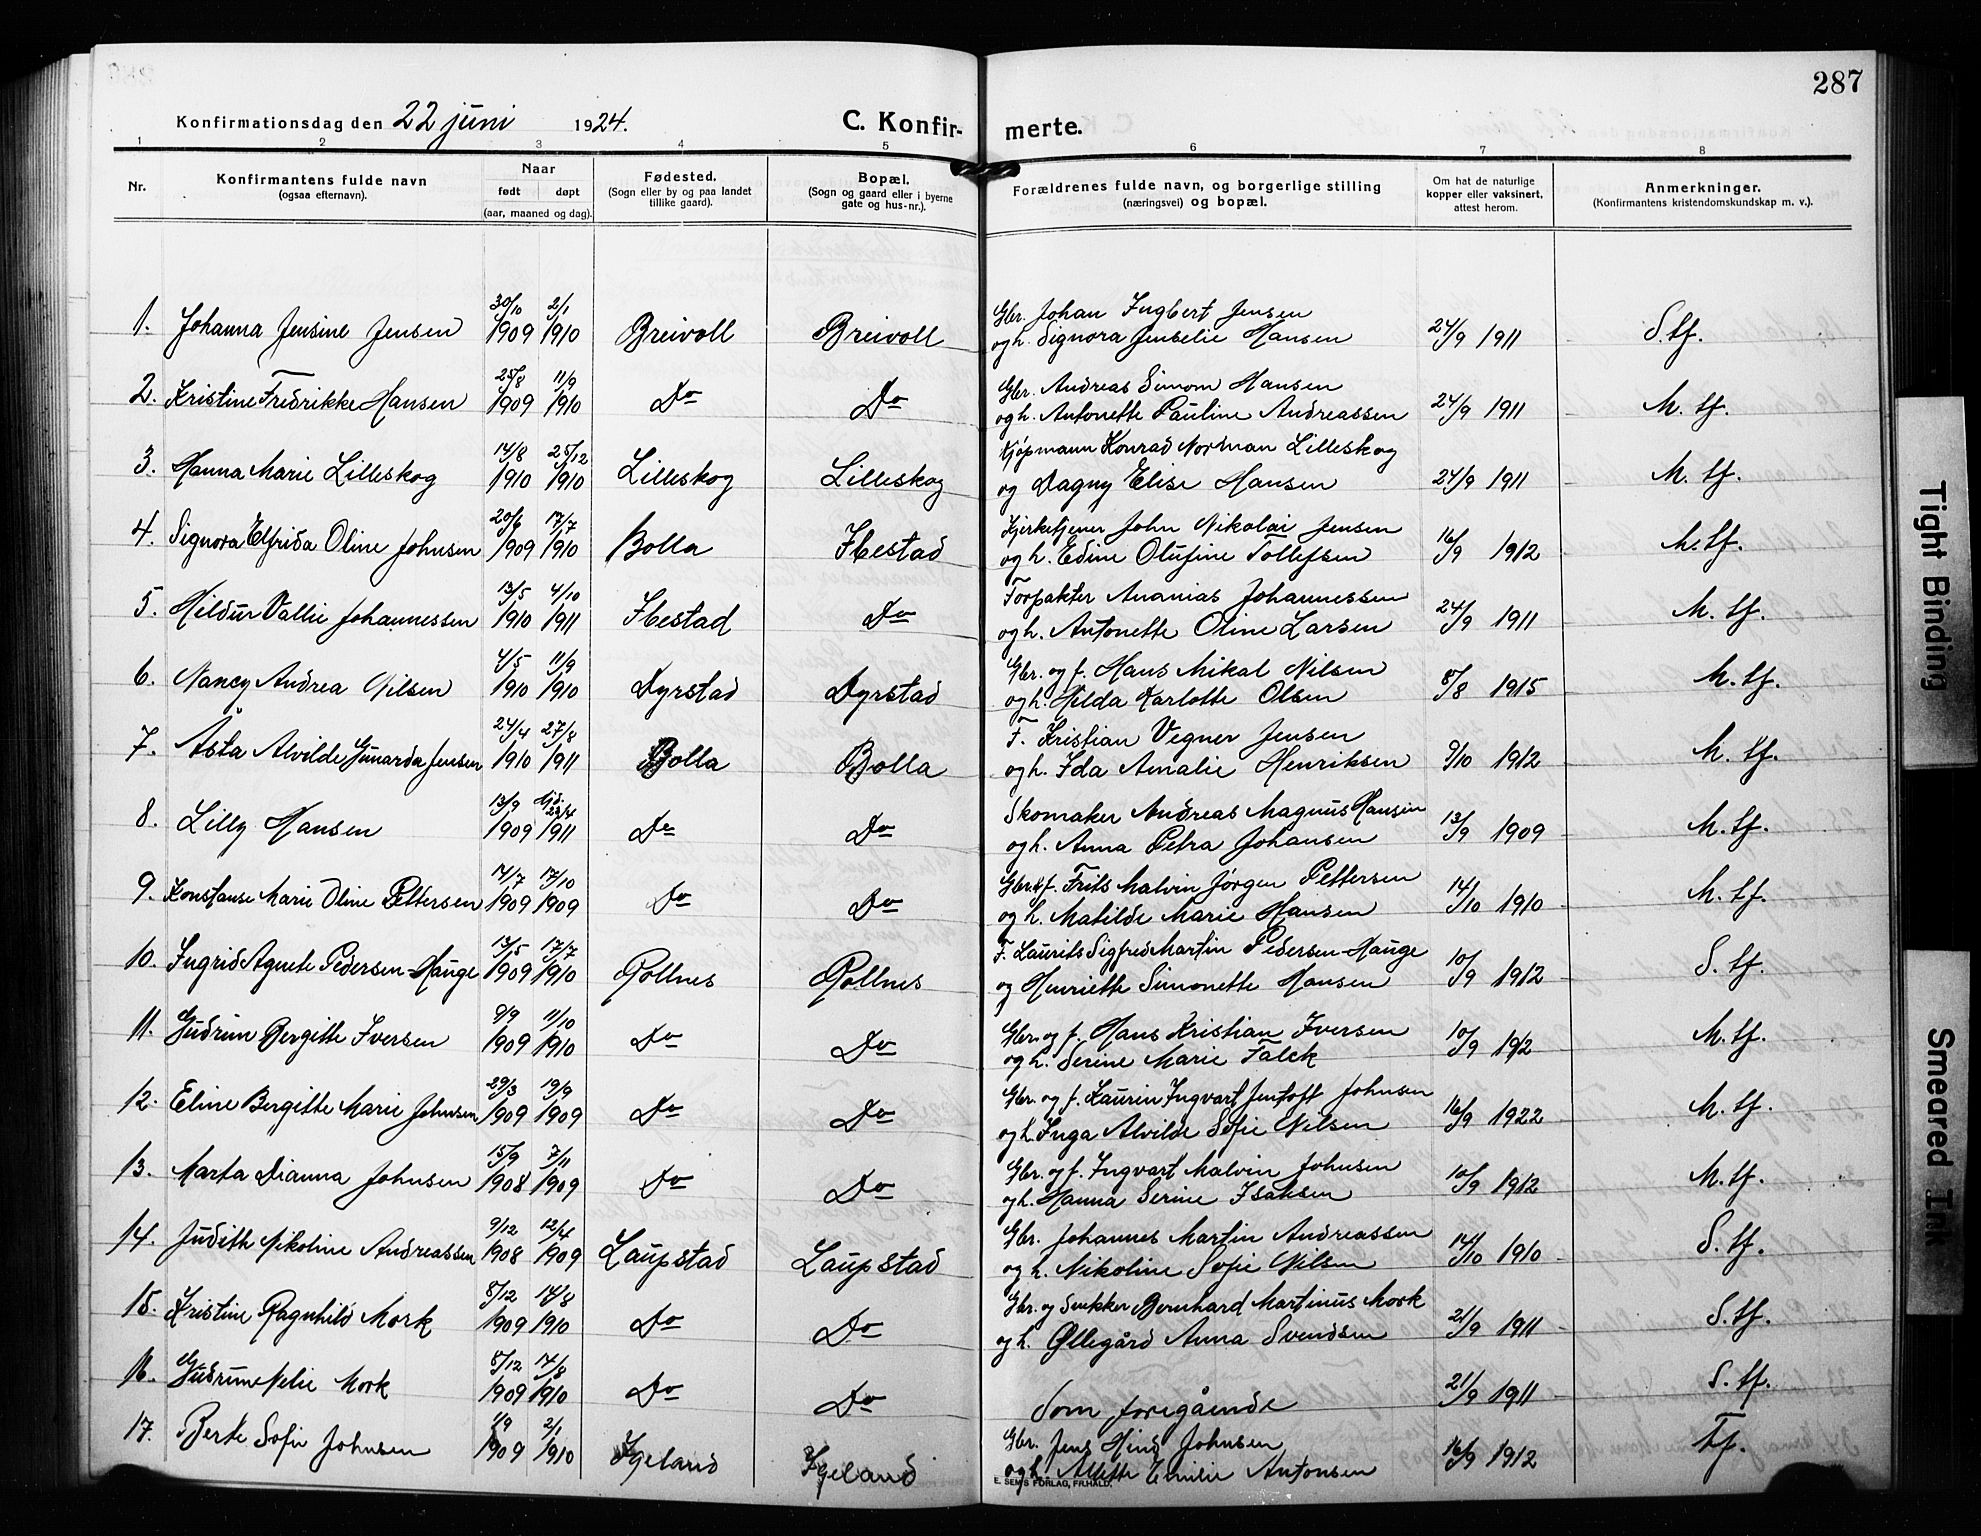 287
Konfirmationsdag den 22 juni 1924. C. Konfirmerte.
1 2 3 4 5 6 7 8
Nr. Konfirmantens fulde navn (ogsaa efternavn). Naar født døpt (aar, maaned og dag). Fødested. (Sogn eller by og paa landet tillike gaard). Bopæl. (Sogn og gaard eller i byerne gate og hus-nr.). Forældrenes fulde navn, og borgerlige stilling (næringsvei) og bopæl. Om hat de naturlige kopper eller vaksinert, attest herom. Anmerkninger. (Konfirmantens kristendomskundskap m. v.).
1. Johanna Jensine Jensen 30/10 1909 2/1 1910 Breivoll Breivoll Gbr. Johan Ingbert Jensen og h. Signora Jenselie Hansen 24/9 1911 S. tf.
2. Kristine Fredrikke Hansen 25/8 1909 11/9 1910 Do Do Gbr. Andreas Simon Hansen og h. Antonette Pauline Andreassen 24/9 1911 M. tf.
3. Hanna Marie Lilleskog 14/8 1910 25/12 1910 Lilleskog Lilleskog Kjøpmann Konrad Norman Lilleskog og Dagny Elise Hansen 24/9 1911 M. tf.
4. Signora Elfrida Oline Johnsen 20/6 1909 17/7 1910 Bolla Ibestad Kjerketjener John Nikolai Jensen og h. Edine Olufine Tollefsen 16/9 1912 M. tf.
5. Hildur Vallie Johannessen 13/5 1910 4/10 1911 Ibestad Do Forpakter Ananias Johannessen og h. Antonette Oline Larsen 24/9 1911 M. tf.
6. Nancy Andrea Nilsen 4/5 1910 11/9 1910 Dyrstad Dyrstad Gbr. og f. Hans Mikal Nilsen og h. Hilda Karlotte Olsen 8/8 1915 M. tf.
7. Asta Alvilde Gunarda Jensen 24/4 1910 27/8 1911 Bolla Bolla F. Kristian Vegner Jensen og h. Ida Amalie Henriksen 9/10 1912 M. tf.
8. Lilly Hansen 13/9 1909 23/4 1911 Do Do Skomaker Andreas Magnus Hansen og h. Anna Petra Johansen 13/9 1909 M. tf.
9. Konstanse Marie Oline Pettersen 14/7 1909 17/10 1909 Do Do Gbr. & f. Frits Malvin Jørgen Pettersen og h. Matilde Marie Hansen 14/10 1910 M. tf.
10. Ingrid Agnete Pedersen-Hauge 13/5 1909 17/7 1910 Rollnes Rollnes F. Laurits Sigfred Martin Pedersen-Hauge og Henriette Simonette Hansen 10/9 1912 S. tf.
11. Gudrun Bergitte Iversen 9/9 1909 11/10 1910 Do Do Gbr. og f. Hans Kristian Iversen og h. Serine Marie Falck 10/9 1912 M. tf.
12. Eline Bergitte Marie Johnsen 29/3 1909 19/9 1909 Do Do Gbr. og f. Laurin Ingvart Jentoft Johnsen og h. Inga Alvilde Sofie Nilsen 16/9 1922 M. tf.
13. Marta Dianna Johnsen 15/9 1908 7/11 1909 Do Do Gbr. og f. Ingvart Malvin Johnsen og h. Hanna Serine Isaksen 10/9 1912 M. tf.
14. Judith Nikoline Andreassen 9/12 1908 12/4 1909 Laupstad Laupstad Gbr. Johannes Martin Andreassen og h. Nikoline Sofie Nilsen 14/10 1910 S. tf.
15. Kristine Ragnhild Mork 8/12 1909 14/8 1910 Do Do Gbr. og Snekker Bernhard Martinus Mork og h. Øllegård Anna Svendsen 21/9 1911 S. tf.
16. Gudrun Nelie Mork 8/12 1909 14/8 1910 Do Do Som foregående 21/9 1911 S. tf.
17. Berte Sofie Johnsen 1/9 1909 2/1 1910 Igeland Igeland Gbr. Jens Hind Johnsen og h. Allette Emilie Antonsen 16/9 1912 Tf.
E. SEMS FORLAG, FR.HALD.
Tight Binding
Smeared Ink